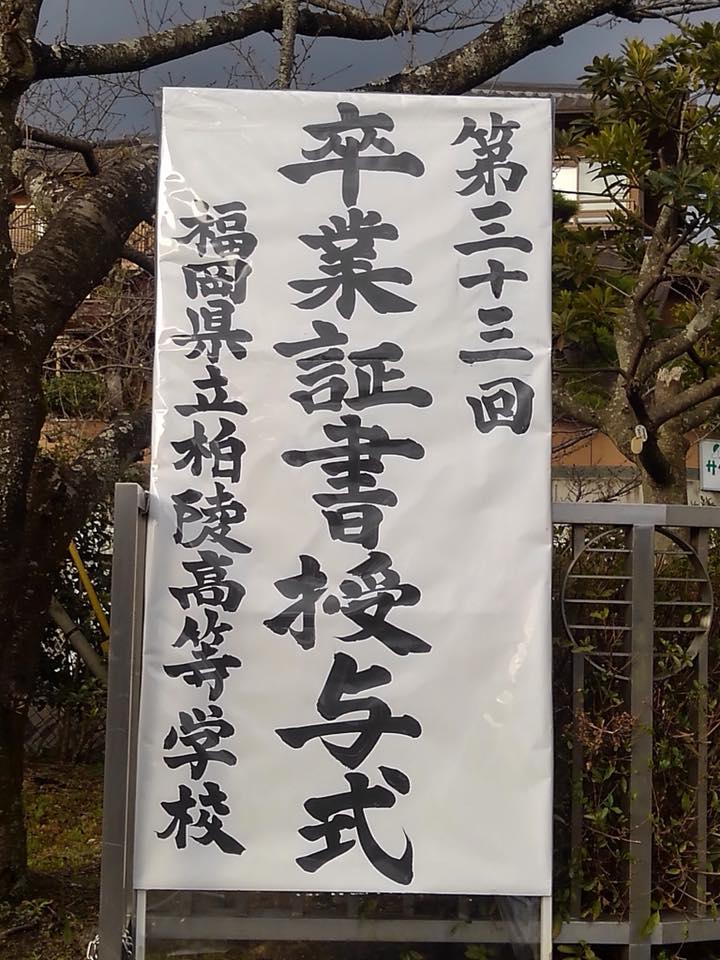 第三十三回
卒業証書授与式
福岡県立柏陵高等学校